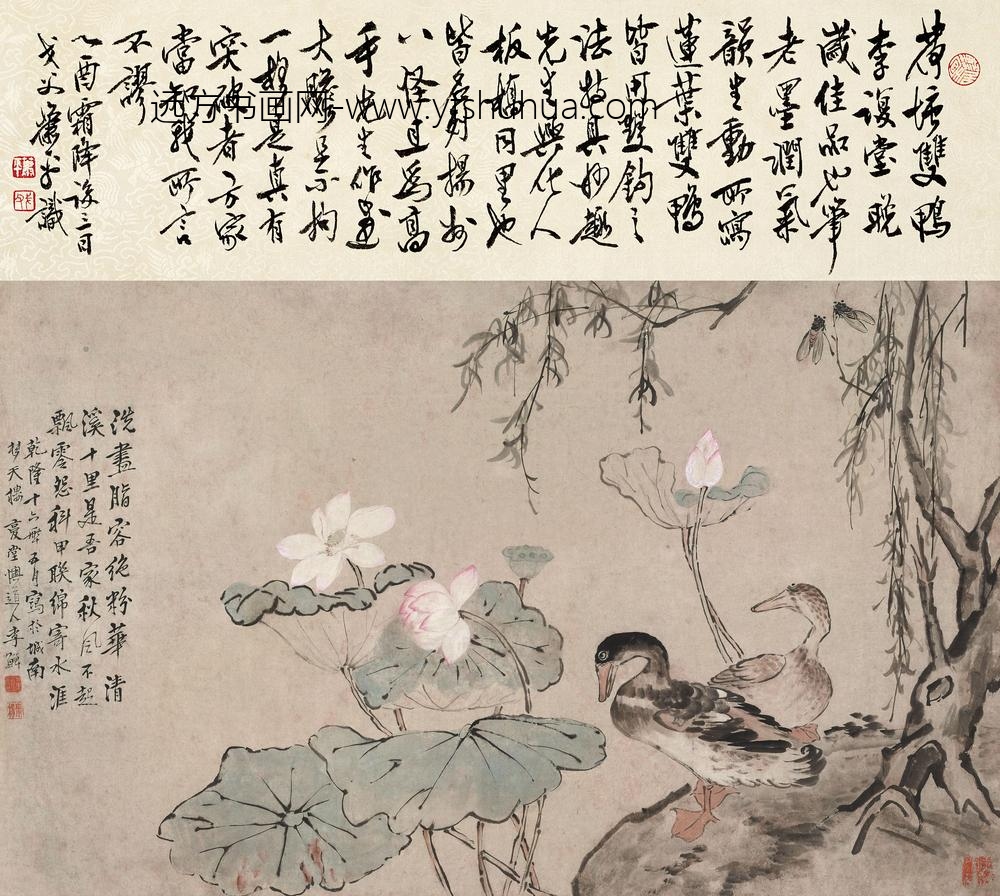 荷塘雙鴨
李復堂晚
歲佳品也筆
老墨潤氣
韻生動所寫
蓮葉雙鴨
皆用雙鉤之
法特具妙趣
先生興化人
板橋同里也
皆名列揚州
八怪且為高
手先生作畫
大膽是不拘
一格是真有
突破者方家
當知我所言
不謬
乙酉霜降後三日
戈父蕭平識
远方书画网-www.yfshuhua.com
洗盡脂容絶粉華清
溪十里是吾家秋風不起
飄零怨科甲聯綿寄水涯
乾隆十六年五月寫於城南
天樓復堂懊道人李鱓